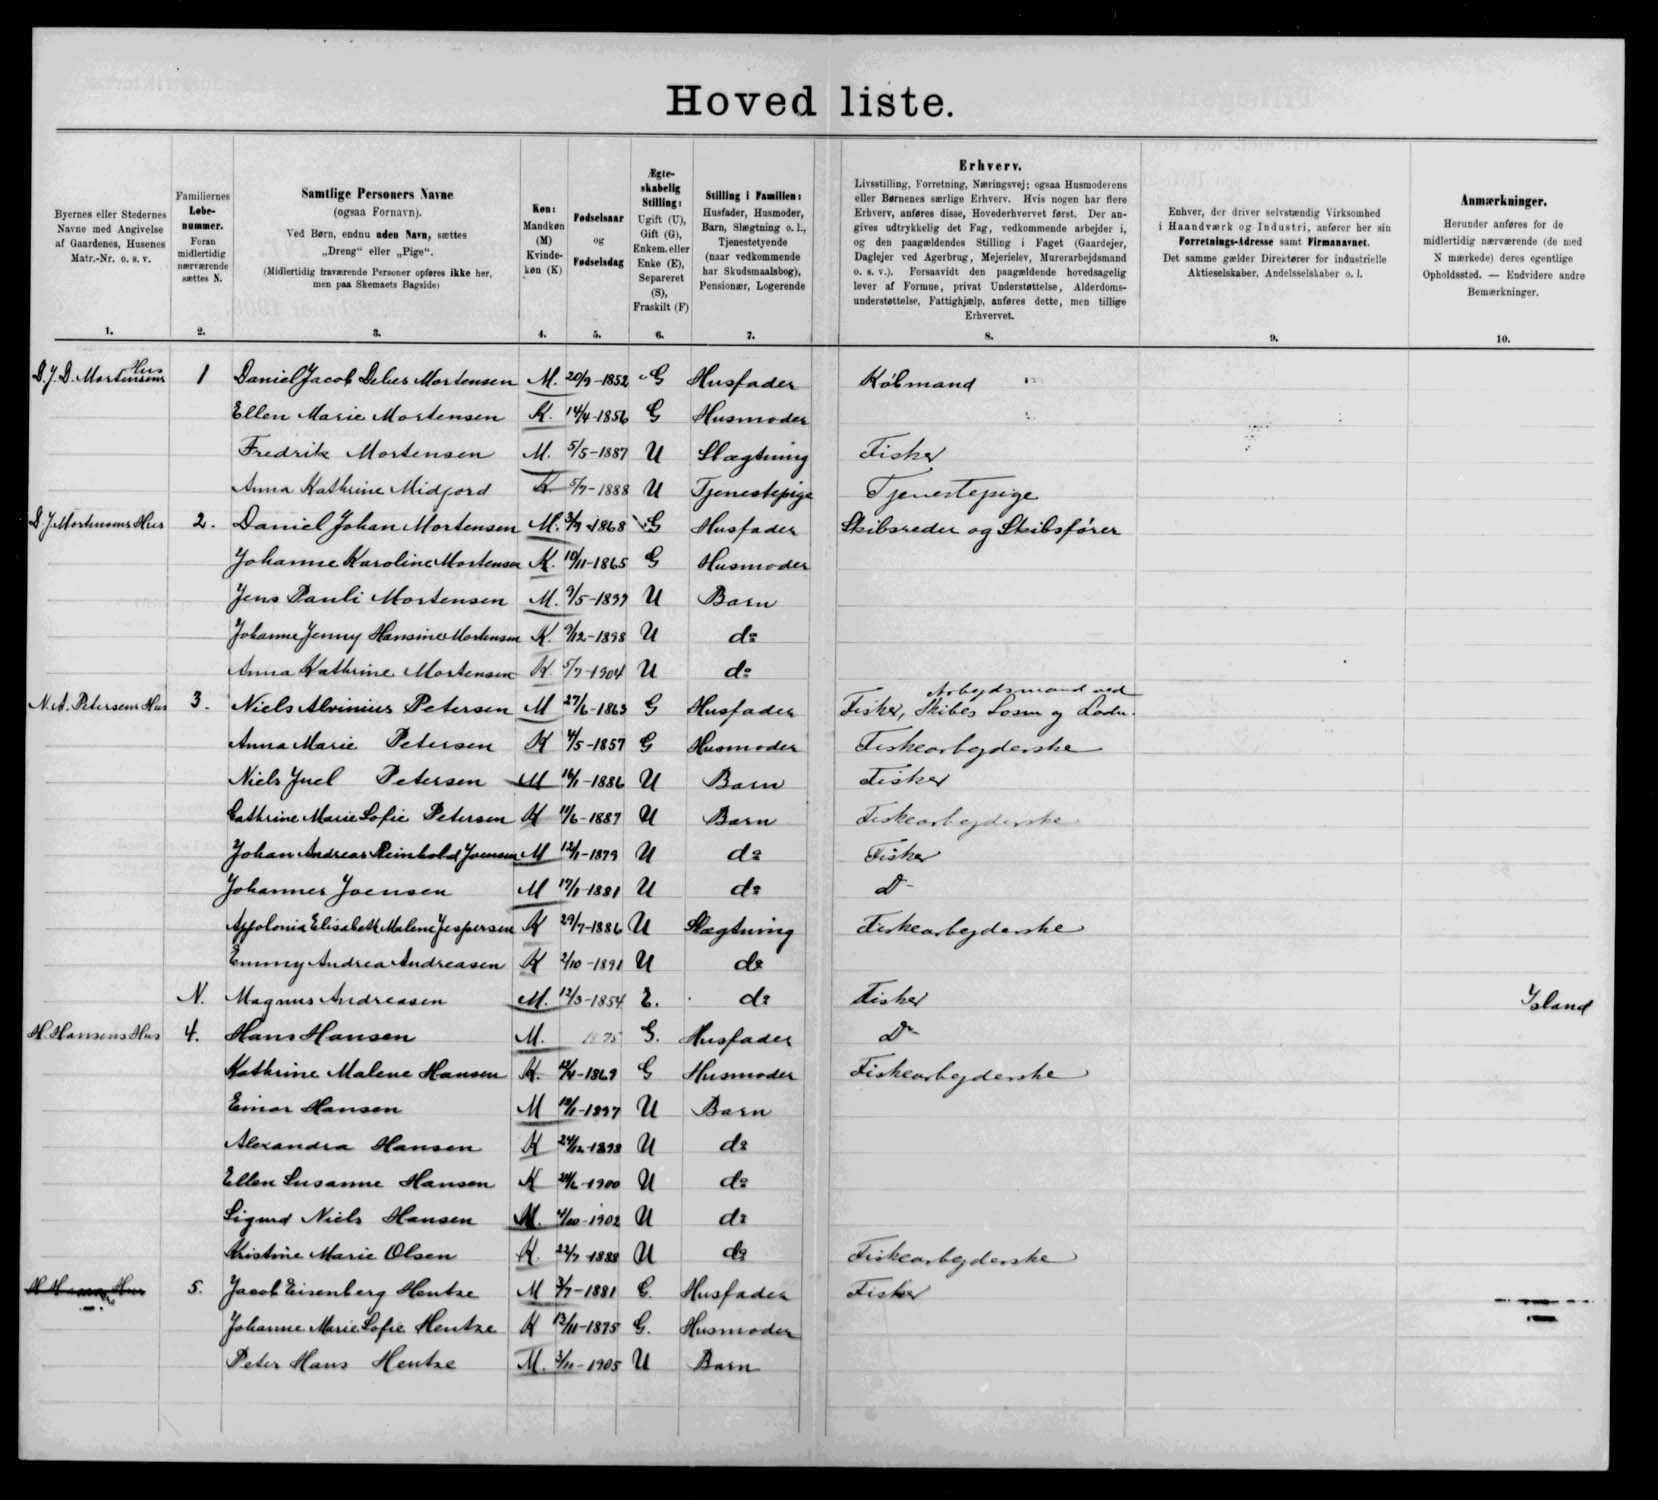 Hoved liste.
Byernes eller Stedernes
Navne med Angivelse
af Gaardenes, Husenes
Matr.-Nr. o. s. v.
1.
Familiernes
Løbe-
nummer.
Foran
midlertidig
nærværende
sættes N.
2.
Samtlige Personers Navne
(ogsaa Fornavn).
Ved Børn, endnu uden Navn, sættes
„Dreng“ eller „Pige“.
(Midlertidig fraværende Personer opføres ikke her,
men paa Skemaets Bagside)
3.
Køn:
Mandkøn
(M)
Kvinde-
køn (K)
4.
Fødselsaar
og
Fødselsdag
5.
Ægte-
skabelig
Stilling:
Ugift (U),
Gift (G),
Enkem. eller
Enke (E),
Separeret
(S),
Fraskilt (F)
6.
Stilling i Familien:
Husfader, Husmoder,
Barn, Slægtning o. l.,
Tjenestetyende
(naar vedkommende
har Skudsmaalsbog),
Pensionær, Logerende
7.
Erhverv.
Livsstilling, Forretning, Næringsvej; ogsaa Husmoderens
eller Børnenes særlige Erhverv. Hvis nogen har flere
Erhverv, anføres disse, Hovederhvervet først. Der an-
gives udtrykkelig det Fag, vedkommende arbejder i,
og den paagældendes Stilling i Faget (Gaardejer,
Daglejer ved Agerbrug, Mejerielev, Murerarbejdsmand
o. s. v.). Forsaavidt den paagældende hovedsagelig
lever af Formue, privat Understøttelse, Alderdoms-
understøttelse, Fattighjælp, anføres dette, men tillige
Erhvervet.
8.
Enhver, der driver selvstændig Virksomhed
i Haandværk og Industri, anfører her sin
Forretnings-Adresse samt Firmanavnet.
Det samme gælder Direktører for industrielle
Aktieselskaber, Andelsselskaber o. l.
9.
Anmærkninger.
Herunder anføres for de
midlertidig nærværende (de med
N mærkede) deres egentlige
Opholdssted. — Endvidere andre
Bemærkninger.
10.
D. J. D. Mortensens Hus 1 Daniel Jacob Debes Mortensen M. 20/9-1852 G Husfader Købmand
Ellen Marie Mortensen K. 14/4-1856 G Husmoder
Fredrik Mortensen M. 5/5-1887 U Slægtning Fisker
Anna Kathrine Midjord K 5/7-1888 U Tjenestepige Tjenestepige
D. J. Mortensens Hus 2. Daniel Johan Mortensen M. 3/9-1868 G Husfader Skibsreder og Skibsfører
Johanne Karoline Mortensen K. 10/11-1865 G Husmoder
Jens Pauli Mortensen M. 9/5-1897 U Barn
Johanne Jenny Hansine Mortensen K. 9/12-1898 U do
Anna Kathrine Mortensen K. 5/7-1904 U do
N. A. Petersens Hus 3. Niels Alvinius Petersen M 27/6-1863 G Husfader Fisker, Arbejdsmand ved Skibes Losn og Ladn.
Anna Marie Petersen K 4/5-1857 G Husmoder Fiskearbejderske
Niels Juel Petersen M 16/1-1886 U Barn Fisker
Cathrine Marie Sofie Petersen K 11/6-1887 U Barn Fiskearbejderske
Johan Andreas Reinhold Joensen M 12/1-1879 U do Fisker
Johannes Joensen M 17/1-1881 U do Do
Appolonia Elisabeth Malene Jespersen K 29/7-1886 U Slægtning Fiskearbejderske
Emmy Andrea Andreasen K 2/10-1891 U do
N. Magnus Andreasen M. 12/3-1854 E. do Fisker Island
H. Hansens Hus 4. Hans Hansen M. 1875 G. Husfader Do
Kathrine Malene Hansen K. -1869 G Husmoder Fiskearbejderske
Einar Hansen M -1897 U Barn
Alexandra Hansen K 24/12-1898 U do
Ellen Susanne Hansen K 24/6-1900 U do
Sigurd Niels Hansen M. 4/10-1902 U do
Kristine Marie Olsen K. 22/7-1888 U do Fiskearbejderske
5. Jacob Eisenberg Hentze M 3/7-1881 G. Husfader Fisker
Johanne Marie Sofie Hentze K 13/11-1875 G. Husmoder
Peter Hans Hentze M. 3/11-1905 U Barn